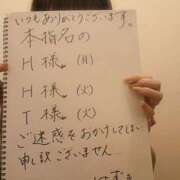 いつもありがとうございます。
本指名の
H 様 (月)
H 様 (火)
T 様 (火)
ご迷惑をおかけしてしまい
申し訳ございません